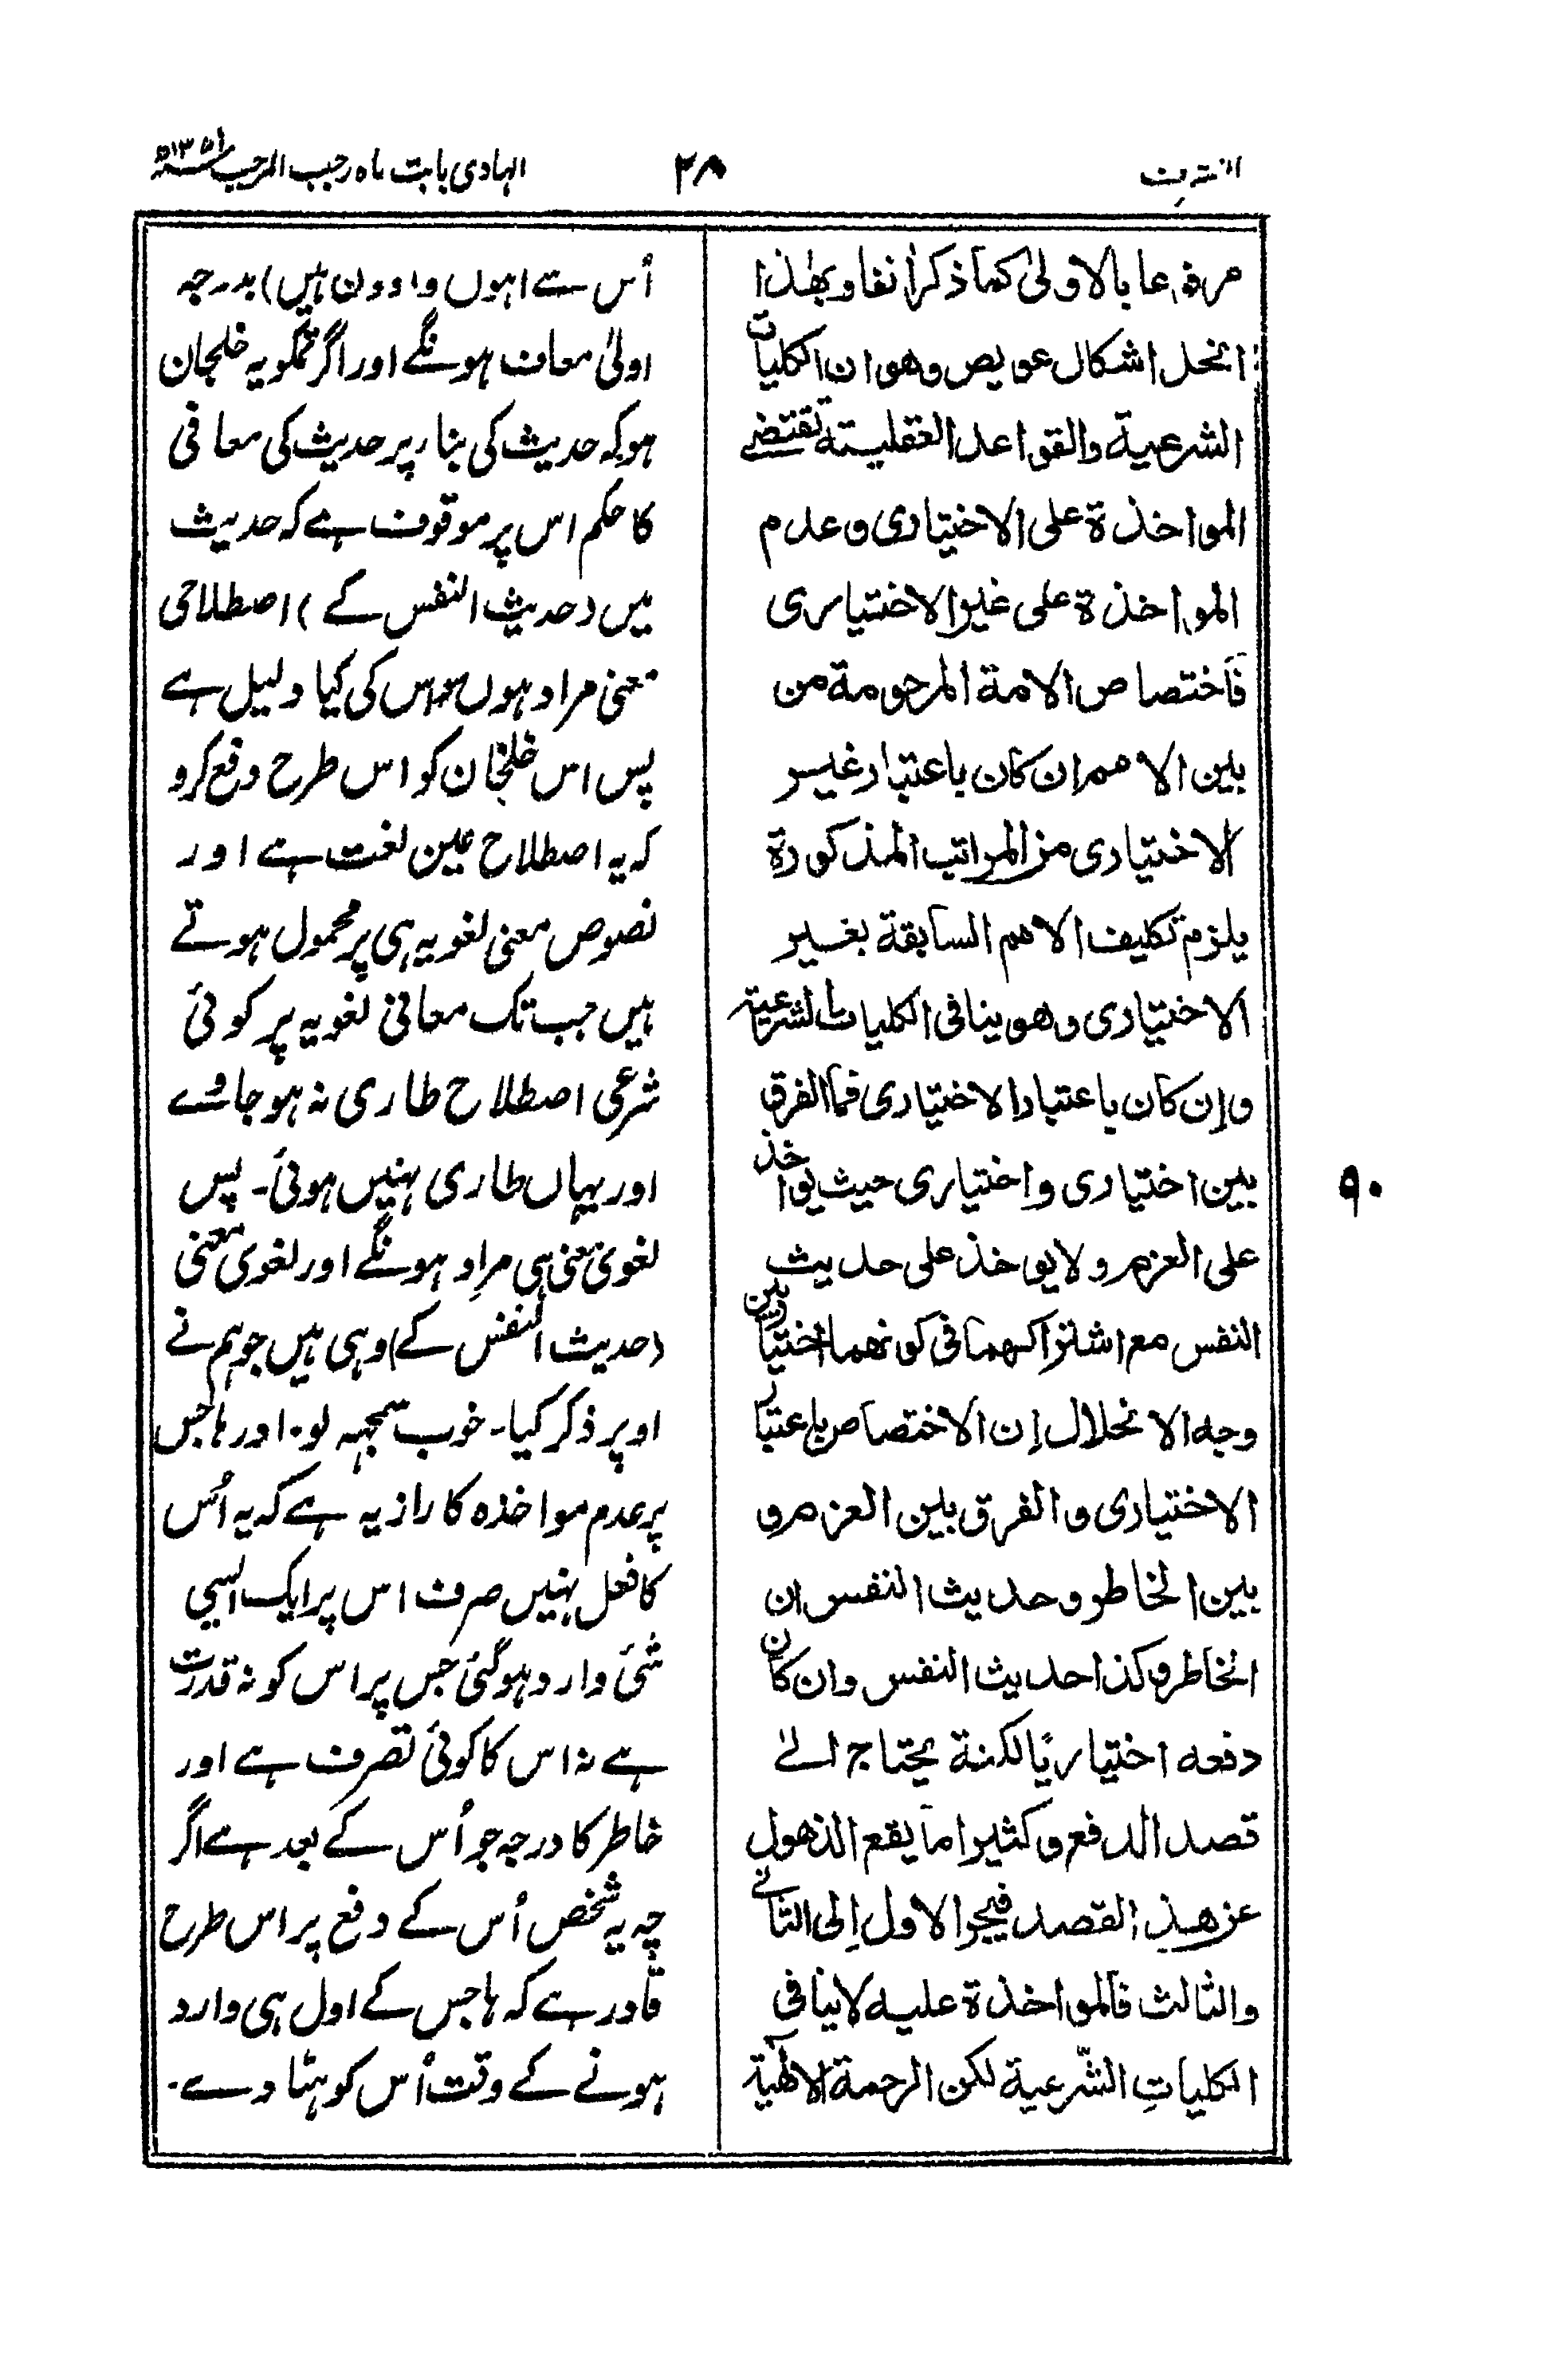 التشرف
۲۸
الہادی بابت ماہ رجب المرجب ۱۳۵۱ھ
مرفوعا بالاولیٰ کما ذکر اٰنفا وبھٰذا
انحل اشکال عویص وھو ان الکلیات
الشرعیة والقواعد العقلیة تقتضے
المواخذة علی الاختیاری وعدم
المواخذة علی غیر الاختیاری
فاختصاص الامة المرحومة من
بین الامم ان کان باعتبار غیر
الاختیاری من المراتب المذکورة
یلزم تکلیف الامم السابقة بغیر
الاختیاری وھو ینافی الکلیات الشرعیة
وان کان باعتبار الاختیاری فما الفرق
بین اختیاری واختیاری حیث یواخذ
علی العزم ولا یواخذ علی حدیث
النفس مع اشتراکھما فی کونھما اختیاریین
وجہ الانحلال ان الاختصاص باعتبار
الاختیاری والفرق بین العزم و
بین الخاطر وحدیث النفس ان
الخاطر وکذا حدیث النفس وان کان
دفعہ اختیاریًا لکنہ یحتاج الیٰ
قصد الدفع وکثیرا ما یقع الذھول
عن ھذا القصد فیجر الاول اِلی الثانی
والثالث فالمواخذة علیہ لا ینافی
الکلیاتِ الشّرعیة لکن الرحمة الالٰھیة
اُس سے اہون وادون ہیں) بدرجہ
اولیٰ معاف ہونگے اور اگر تمکو یہ خلجان
ہو کہ حدیث کی بناء پر حدیث کی معافی
کا حکم اس پر موقوف ہے کہ حدیث
میں (حدیث النفس کے) اصطلاحی
معنی مراد ہوں سو اس کی کیا دلیل ہے
پس اس خلجان کو اس طرح دفع کرو
کہ یہ اصطلاح عین لغت ہے اور
نصوص معنی لغویہ ہی پر محمول ہوتے
ہیں جب تک معانی لغویہ پر کوئی
شرعی اصطلاح طاری نہ ہو جاوے
اور یہاں طاری نہیں ہوئی۔ پس
لغوی معنی ہی مراد ہونگے اور لغوی معنی
(حدیث النفس کے) وہی ہیں جو ہم نے
اوپر ذکر کیا۔ خوب سمجہہ لو۔ اور ہاجس
پر عدم مواخذہ کا راز یہ ہے کہ یہ اُس
کا فعل نہیں صرف اس پر ایک ایسی
شئ وارد ہوگئی جس پر اس کو نہ قدرت
ہے نہ اس کا کوئی تصرف ہے اور
خاطر کا درجہ جو اُس کے بعد ہے اگر
چہ یہ شخص اُس کے دفع پر اس طرح
قادر ہے کہ ہاجس کے اول ہی وارد
ہونے کے وقت اُس کو ہٹا دے۔
۹۰